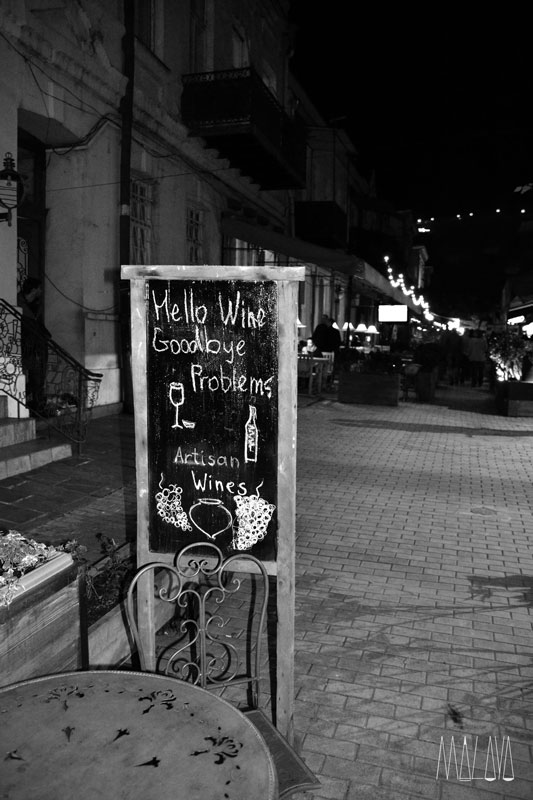 Hello Wine
Goodbye
Problems
Artisan
Wines
MALAVA